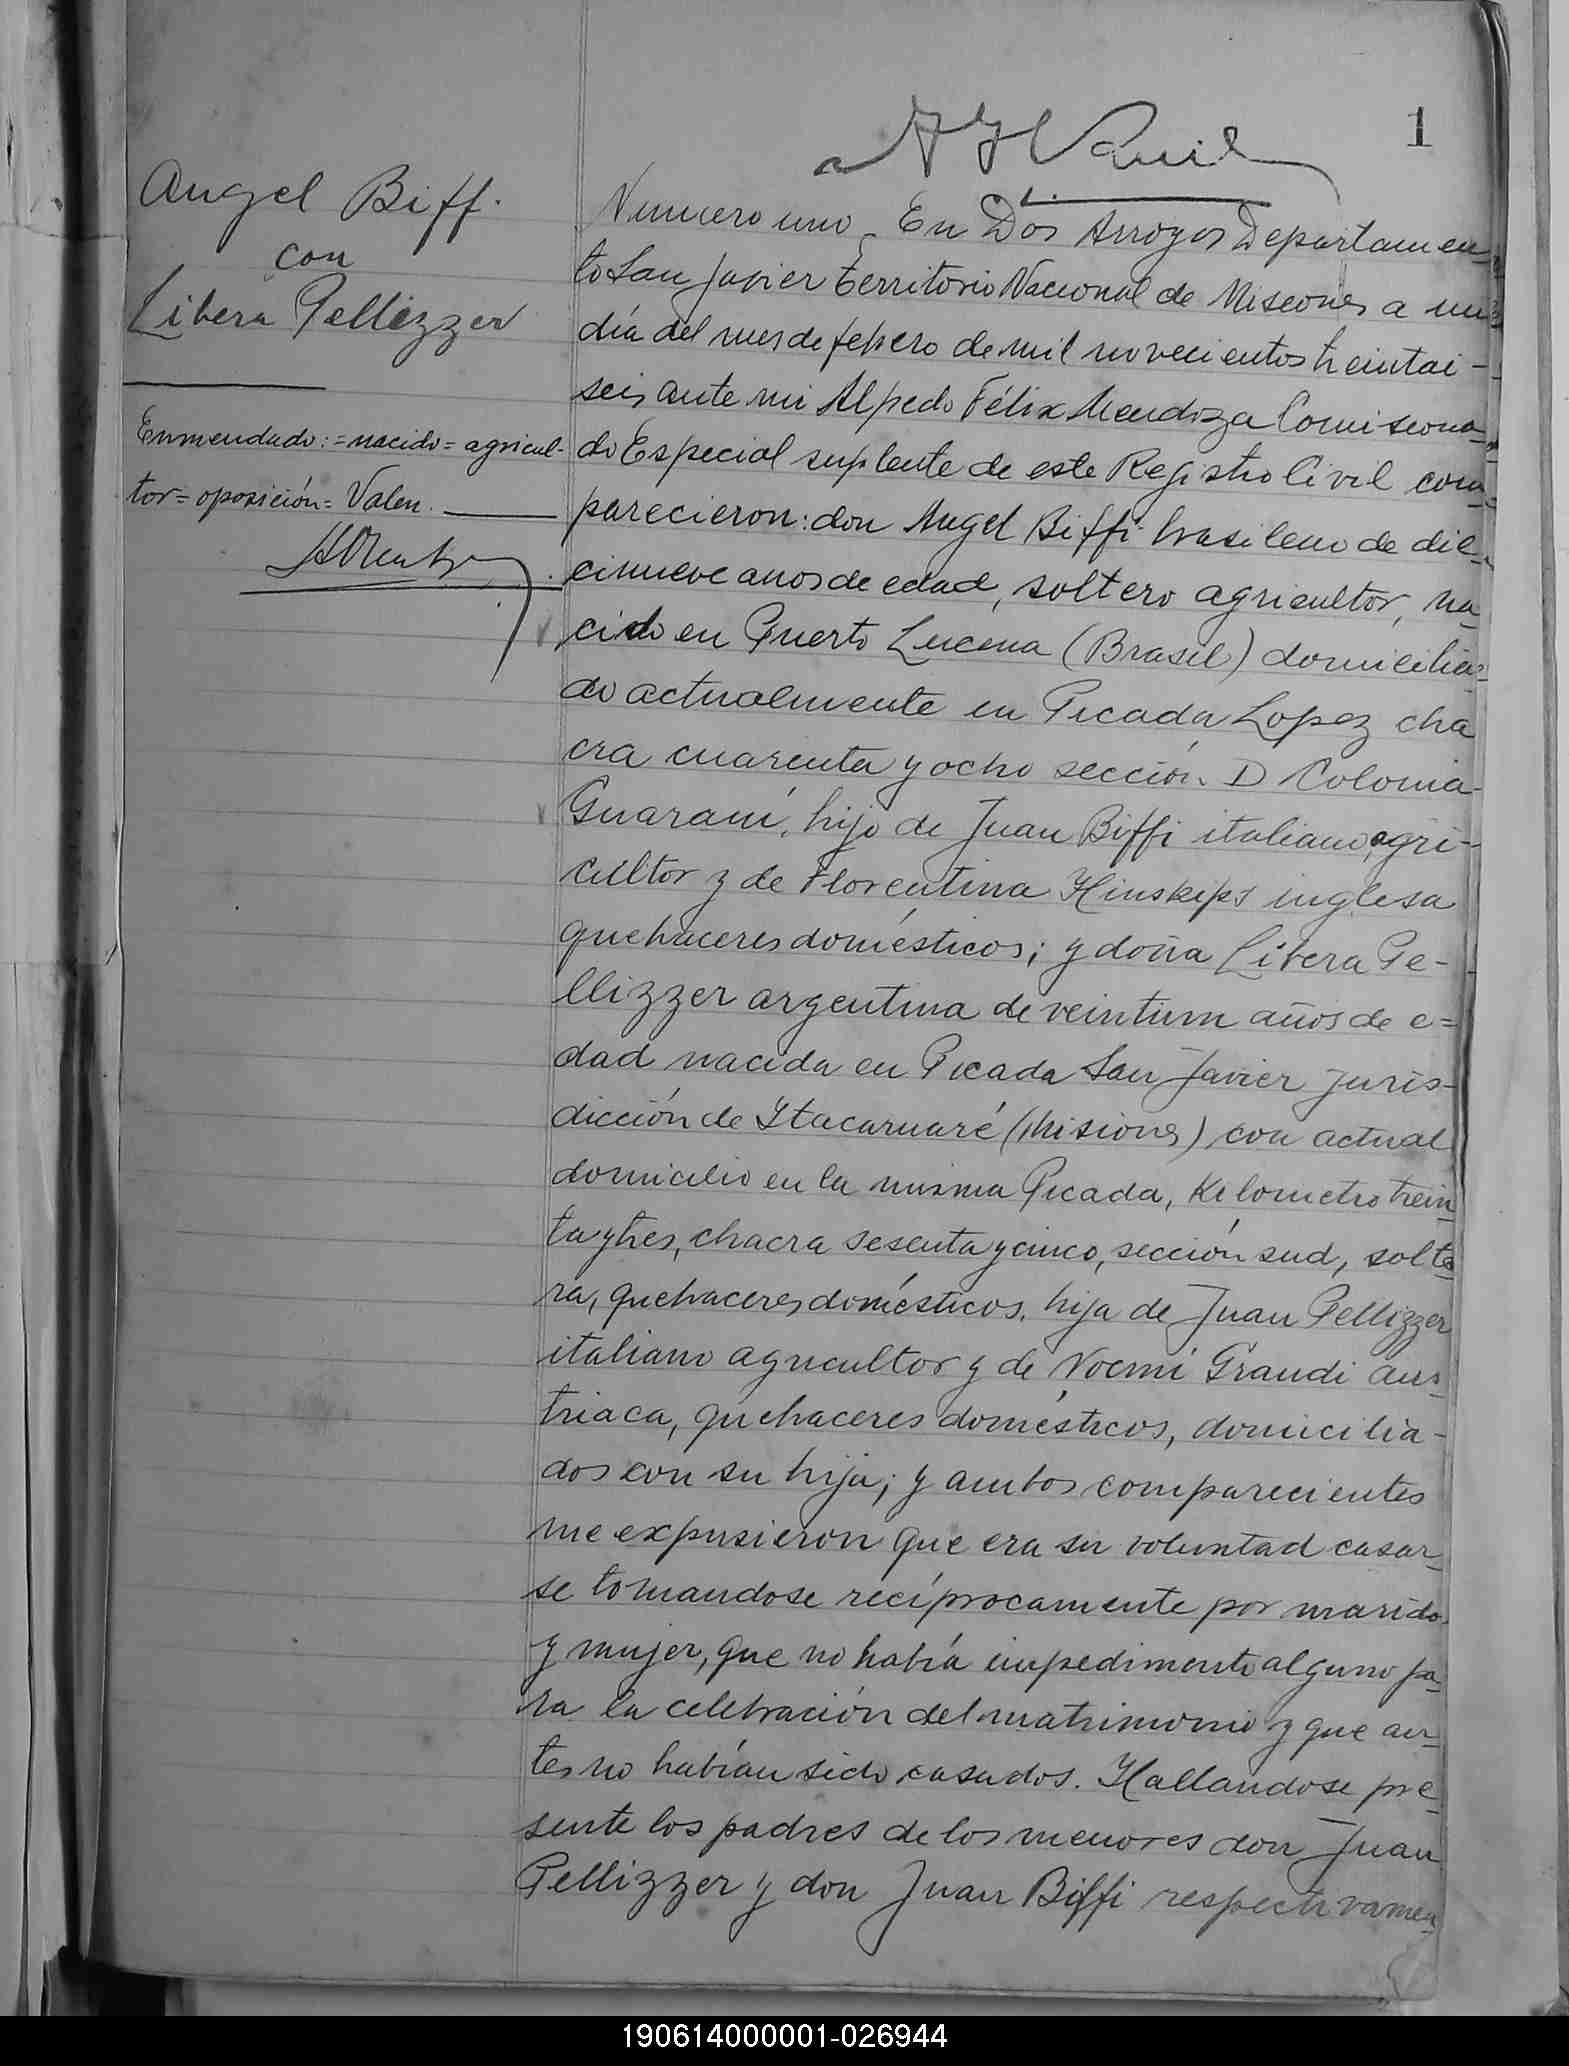 1
Angel Biffi
con
Libera Pellizzer
Enmendado:=nacido=agricul-
tor=oposición=Valen.
Numero uno. En Dos Arroyos Departamen-
to San Javier Territorio Nacional de Misiones a un
día del mes de febrero de mil novecientos treintai-
seis ante mi Alfredo Félix Mendoza Comisiona-
do Especial suplente de este Registro Civil com-
parecieron: don Angel Biffi brasileno de die-
cinueve anos de edad, soltero agricultor, na-
cido en Puerto Lucena (Brasil) domicilia-
do actualmente en Picada Lopez cha
cra cuarenta y ocho sección D Colonia
Guaraní, hijo de Juan Biffi italiano, agri-
cultor y de Florentina Hinskips inglesa
quehaceres domésticos; y doña Libera Pe-
llizzer argentina de veintiun años de e=
dad nacida en Picada San Javier juris-
dicción de Itacaruaré (Misiones) con actual
domicilio en la misma Picada, Kilometro trein
ta y tres, chacra sesenta y cinco, sección sud, solte-
ra, quehaceres domésticos, hija de Juan Pellizzer
italiano agricultor y de Noemi Grandi aus-
triaca, quehaceres domésticos, domicilia-
dos con su hija; y ambos comparecientes
me expusieron que era su voluntad casar-
se tomandose recíprocamente por marido
y mujer, que no había impedimento alguno pa-
ra la celebración del matrimonio y que an-
tes no habían sido casados. Hallandose pre-
sente los padres de los menores don Juan
Pellizzer y don Juan Biffi respectivamen-
190614000001-026944